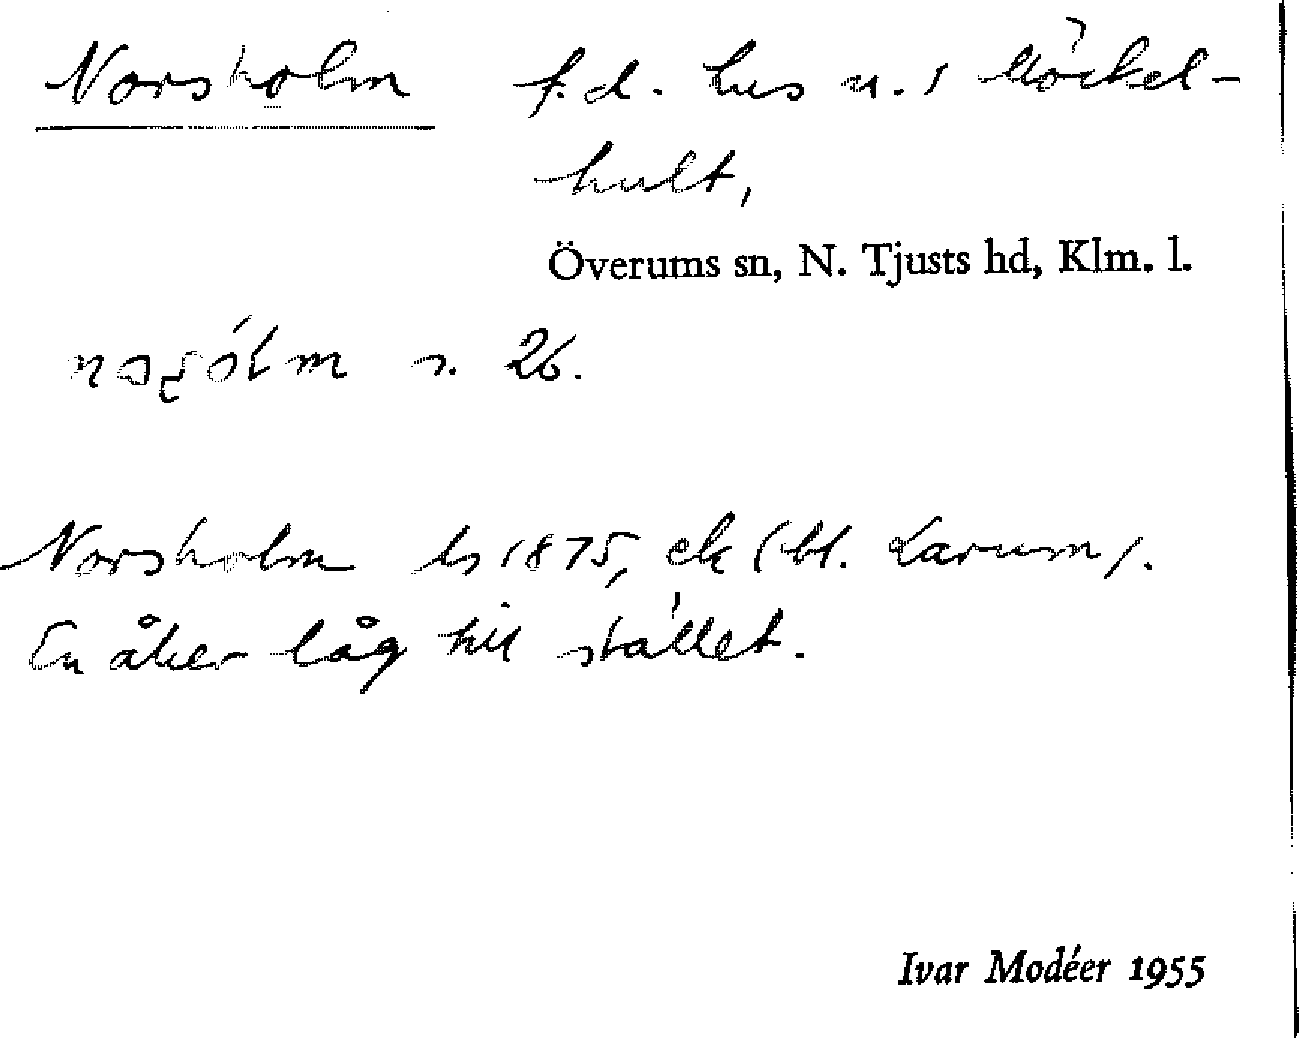 Norsholm f.d. hus u. s Möckel-
hult,
Överums sn, N. Tjusts hd, Klm. l.
s. 26.
Norsholm hs 1875, ek (bl. Larum).
En åker låg till stället.
Ivar Modéer 1955